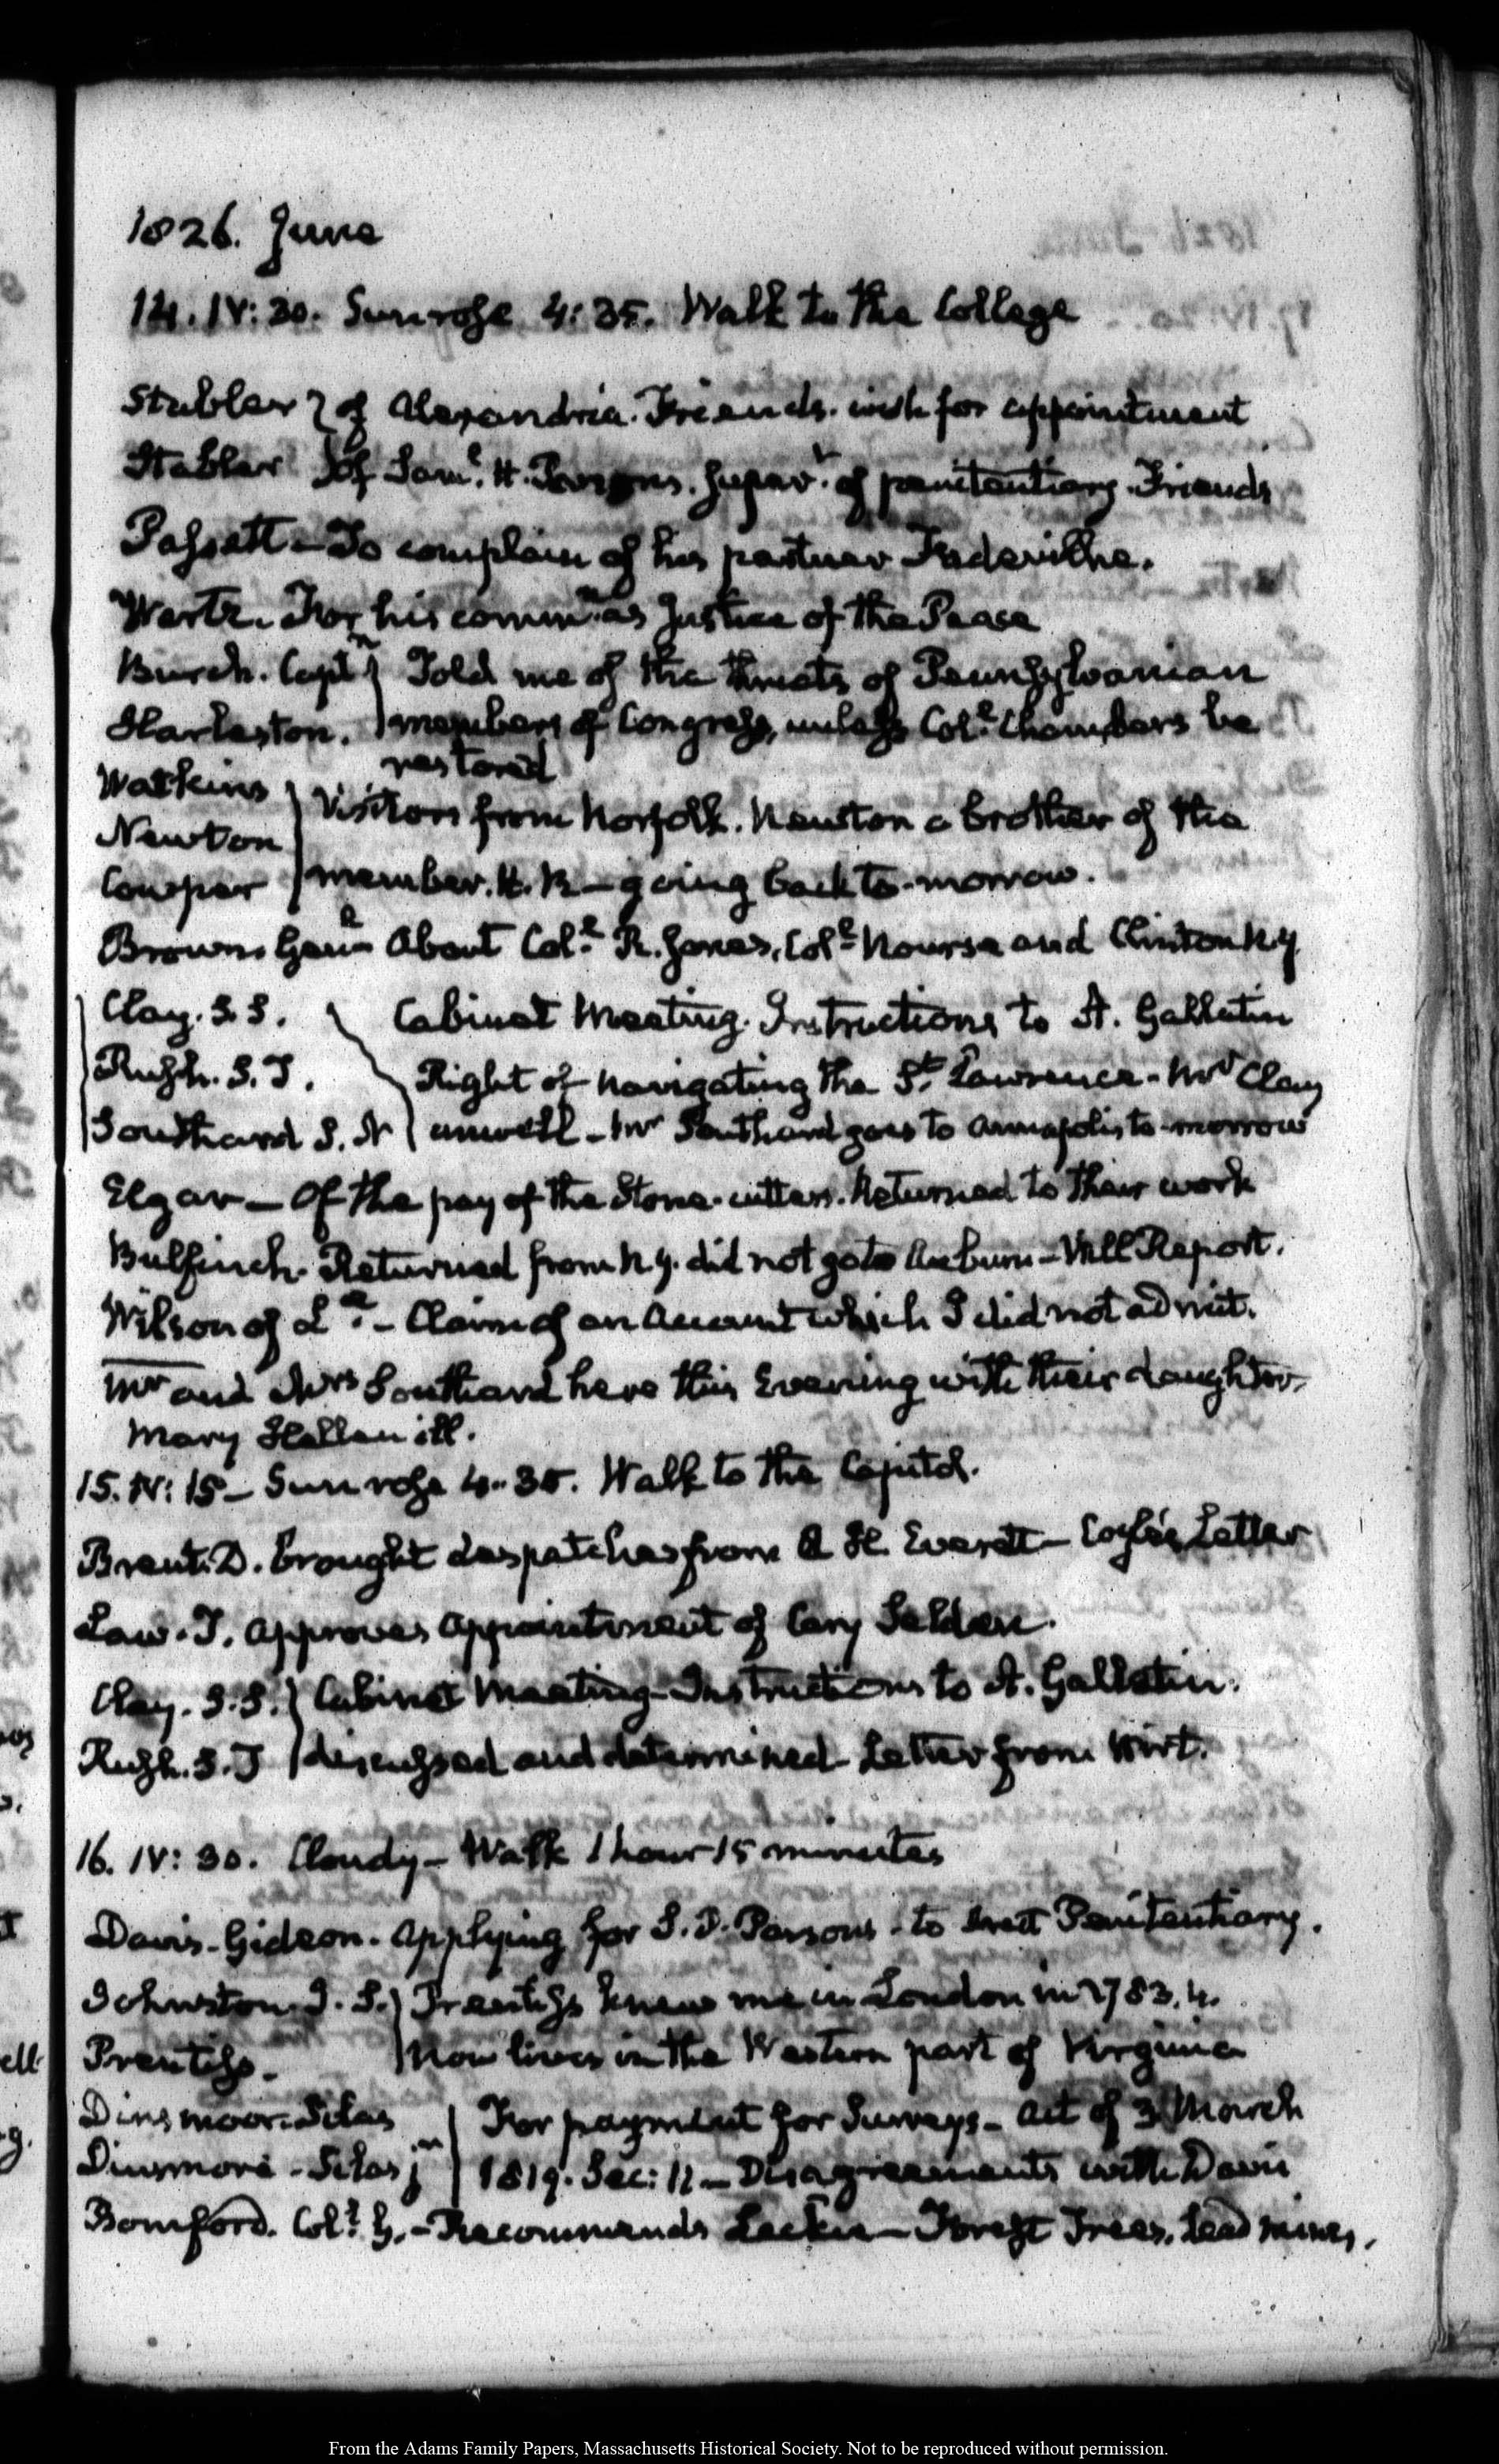 1826. June
14. IV: 30. Sun rose 4: 35. Walk to the College
Stabler } of Alexandria. Friends. wish for appointment
Stabler } of Saml. H. Parsons. Superr. of penitentiary. Friends
Bassett - To complain of his partner
Wertz. For his commn. as Justice of the Peace
Burch. Captn } Told me of the threats of Pennsylvanian
Harleston. } members of Congress, unless Coll. Chambers be
restored
Watkins } Visitors from Norfolk. Newton a brother of the
Newton
Cowper } member. H. R - going back to-morrow.
Brown. Genl. About Coll. R. Jones, Coll. Nourse and Clinton N.Y.
Clay. S.S. Cabinet Meeting. Instructions to A. Gallatin
Rush. S.T. Right of navigating the St. Lawrence - Mr Clay
Southard S. N } unwell - Mr Southard goes to Annapolis to-morrow
Elgar - Of the pay of the Stone-cutters. Returned to their work
Bulfinch. Returned from N.Y. did not go to Auburn - Will Report.
Wilson of La. - Claim of an Account which I did not admit.
Mr and Mrs Southard here this Evening with their daughter.
Mary Hellen ill.
15. IV: 15 - Sun rose 4-35. Walk to the Capitol.
Brent. D. brought despatches from A H. Everett - Letter
Law. T. approves appointment of Cary Selden.
Clay. S.S. } Cabinet Meeting - Instructions to A. Gallatin.
Rush. S.T } discussed and determined - Letter from Wirt.
16. IV: 30. Cloudy - Walk 1 hour 15 minutes
Davis - Gideon. applying for S. D. Parsons - to erect Penitentiary.
Johnston. J. S. } Prentiss knew me in London in 1783.4.
Prentiss. } Now lives in the Western part of Virginia
Dinsmoor. Silas } For payment for Surveys - act of 3 March
Dinsmore - Silas jun } 1819. Sec: 11 - Disagreements with Davis
Bomford. Coll. G. - Recommends Leckie - Forest Trees. Lead mines.
From the Adams Family Papers, Massachusetts Historical Society. Not to be reproduced without permission.